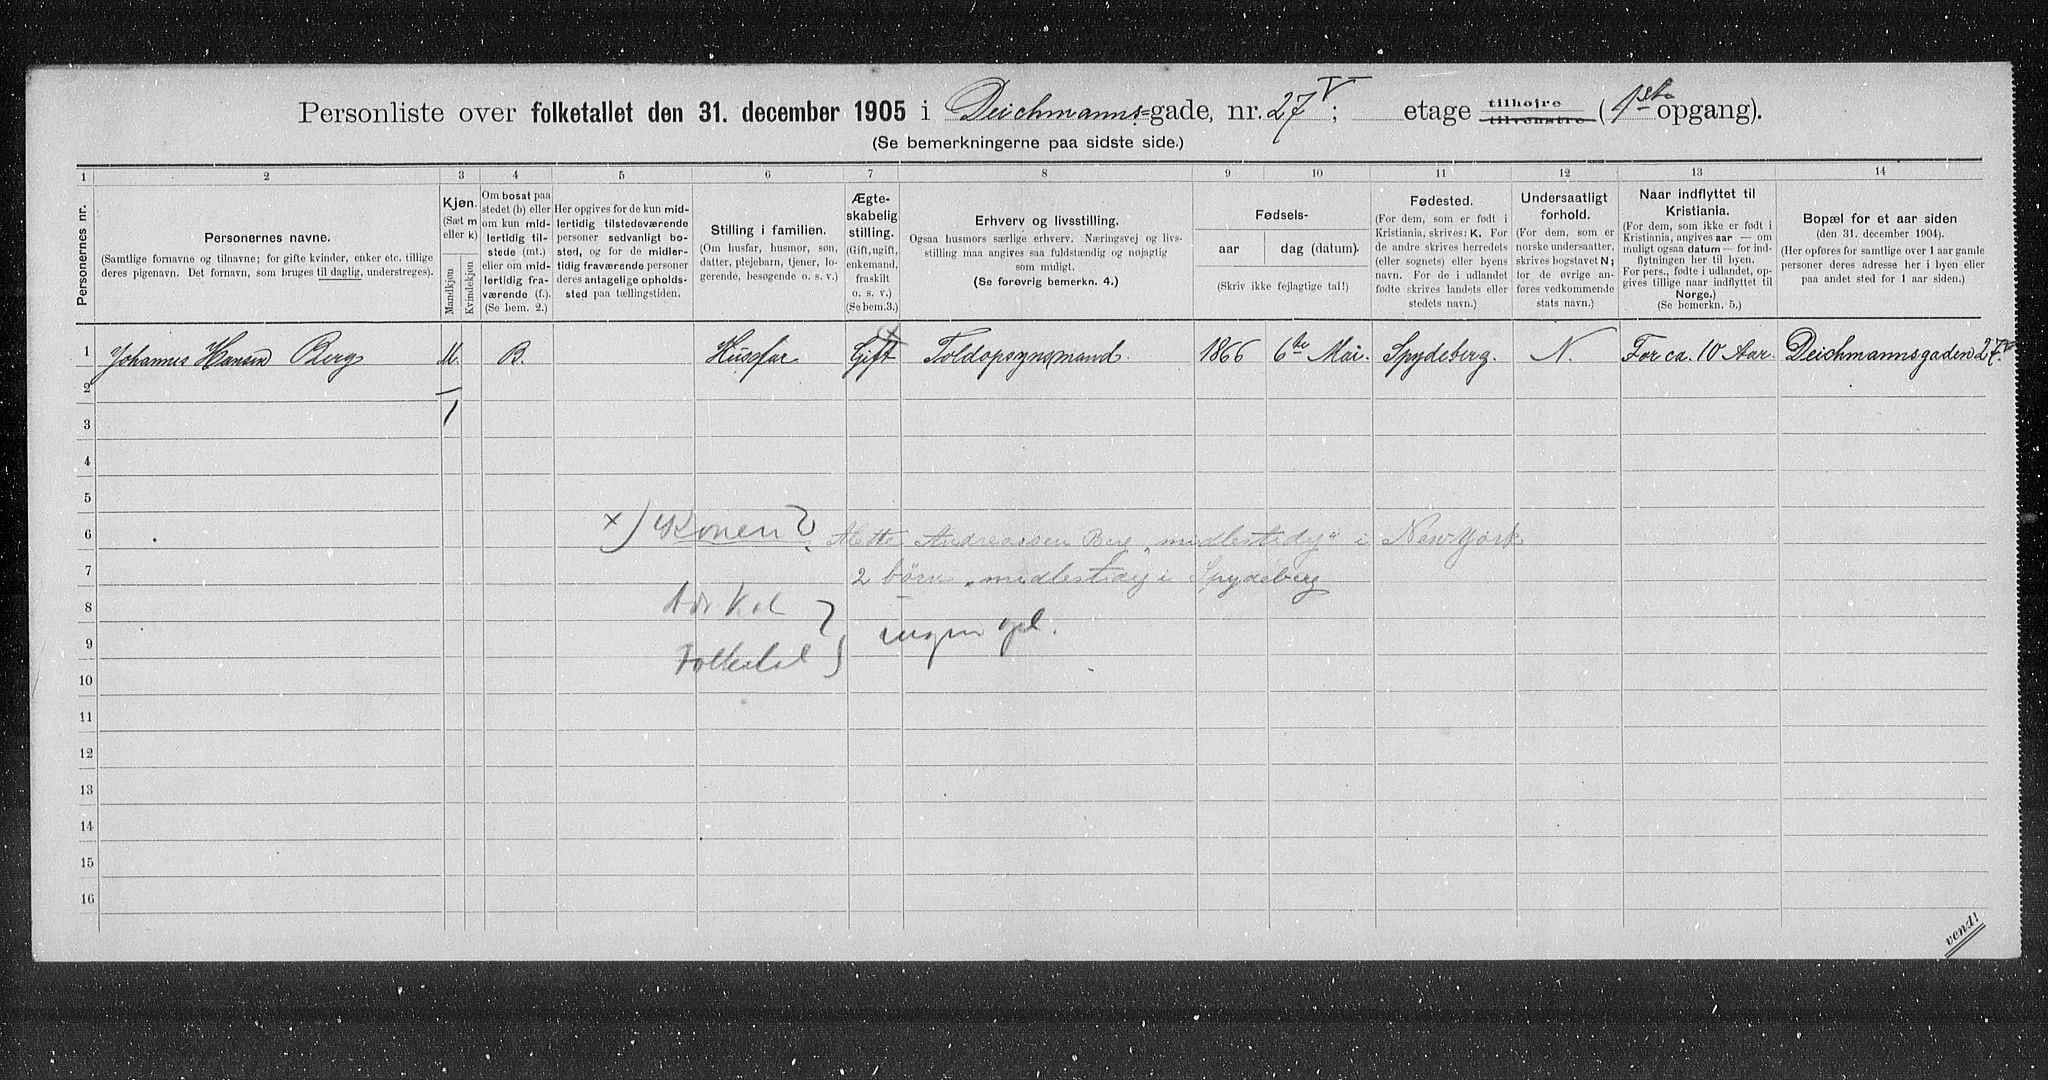 Personliste over folketallet den 31. december 1905 i Deichmanns=gade, nr. 27 V; etage tilhøjre tilvenstre (1ste opgang).
(Se bemerkningerne paa sidste side.)
1 2 3 4 5 6 7 8 9 10 11 12 13 14
Personernes nr.
Personernes navne.
(Samtlige fornavne og tilnavne; for gifte kvinder, enker etc. tillige
deres pigenavn. Det fornavn, som bruges til daglig, understreges).
Kjøn.
(Sæt m
eller k)
Mandkjøn
Kvindekjøn
Om bosat paa
stedet (b) eller
om kun mid-
lertidig til-
stede (mt.)
eller om mid-
lertidig fra-
værende (f.).
(Se bem. 2.)
Her opgives for de kun mid-
lertidig tilstedeværende
personer sedvanligt bo-
sted, og for de midler-
tidig fraværende personer
deres antagelige opholds-
sted paa tællingstiden.
Stilling i familien.
(Om husfar, husmor, søn,
datter, plejebarn, tjener, lo-
gerende, besøgende o. s. v.)
Ægte-
skabelig
stilling.
(Gift, ugift,
enkemand,
fraskilt
o. s. v.)
(Se bem.3.)
Erhverv og livsstilling.
Ogsaa husmors særlige erhverv. Næringsvej og livs-
stilling maa angives saa fuldstændig og nøjagtig
som muligt.
(Se forøvrig bemerkn. 4.)
Fødsels-
aar dag (datum).
(Skriv ikke fejlagtige tal!)
Fødested.
(For dem, som er født i
Kristiania, skrives: K. For
de andre skrives herredets
(eller sognets) eller byens
navn. For de i udlandet
fødte skrives landets eller
stedets navn.)
Undersaatligt
forhold.
(For dem, som er
norske undersaatter,
skrives bogstavet N;
for de øvrige an-
føres vedkommende
stats navn.)
Naar indflyttet til
Kristiania.
(For dem, som ikke er født i
Kristiania, angives aar — om
muligt ogsaa datum — for ind-
flytningen her til byen.
For pers., fødte i udlandet, op-
gives tillige naar indflyttet til
Norge.)
(Se bemerkn. 5.)
Bopæl for et aar siden
(den 31. december 1904).
(Her opføres for samtlige over 1 aar gamle
personer deres adresse her i byen eller
paa andet sted for 1 aar siden.)
1 Johannes Hansen Berg M. B. Husfar Gift x Toldopsynsmand. 1866 6te Mai. Spydeberg. N. For ca. 10 Aar. Deichmannsgaden 27 V
2
3 1
4
5
6 x) Konen? Mette Andreassen Berg „midlertidig" i New York
7 2 børn „midlertidig i Spydeberg
8
9 Folketal ingen opl.
10
11
12
13
14
15
16
vend!